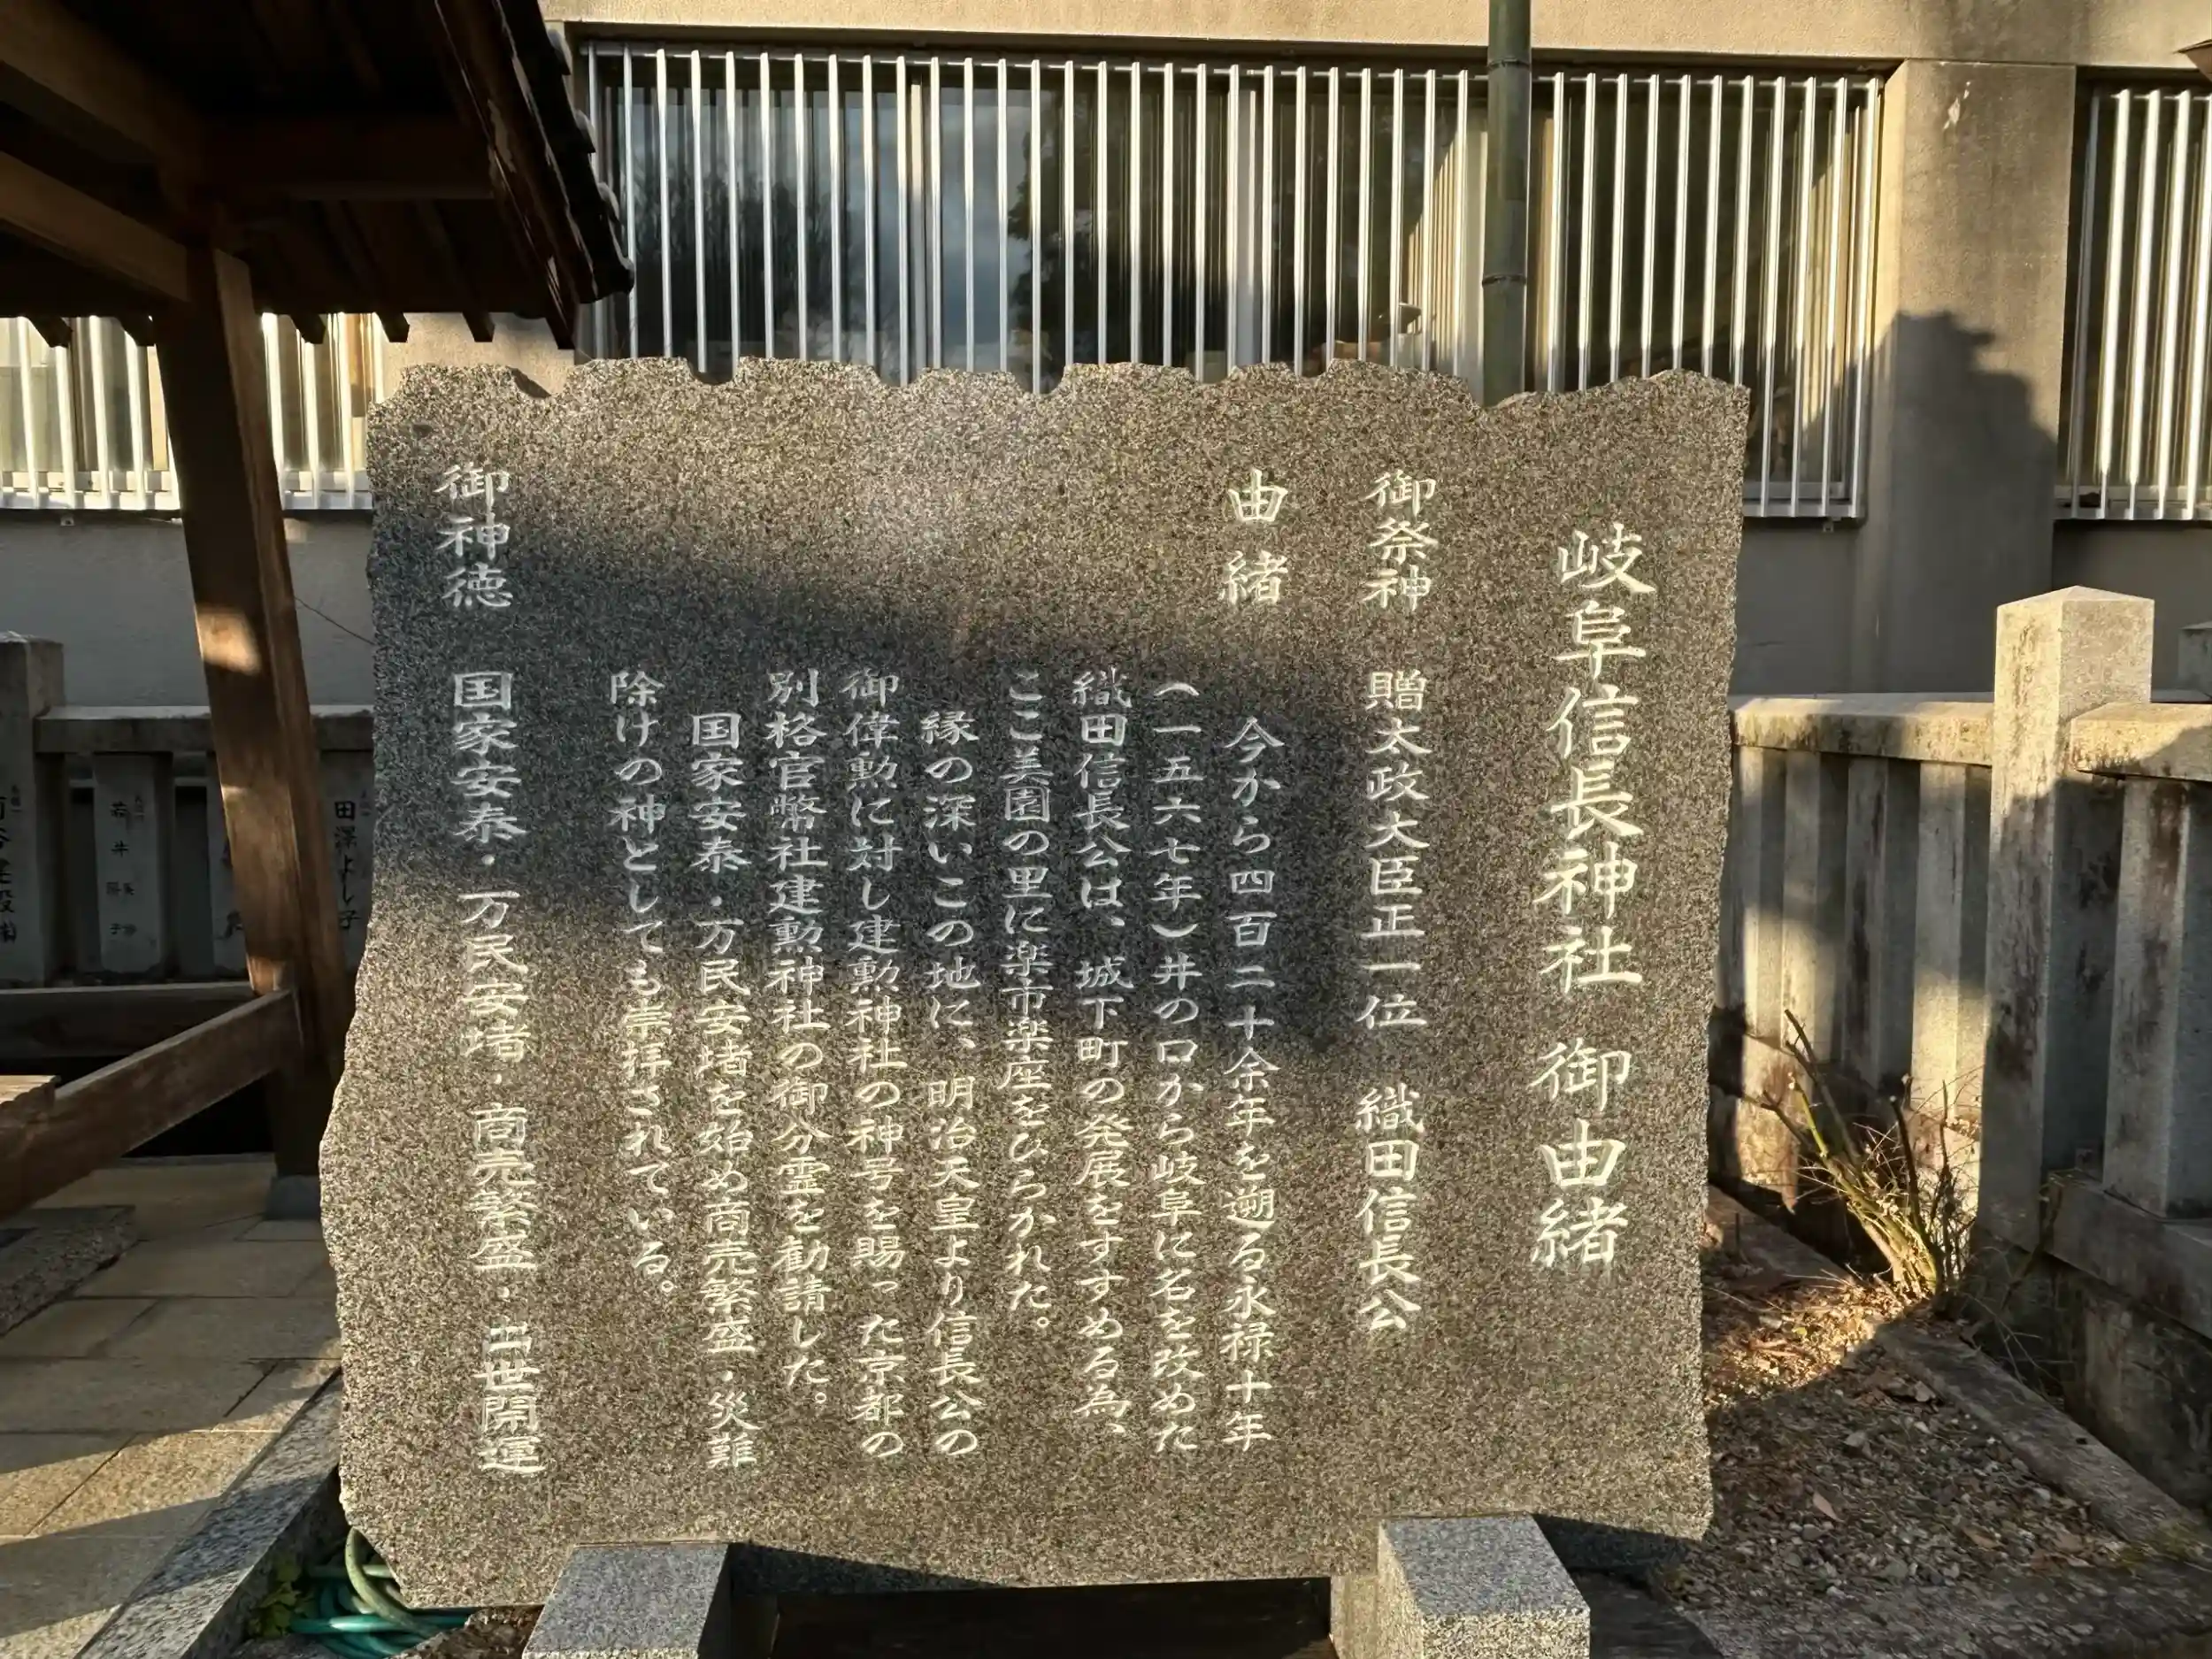 岐阜信長神社 御由緒
御祭神 贈太政大臣正一位 織田信長公
由緒
今から四百二十余年を遡る永禄十年
(一五六七年)井の口から岐阜に名を改めた
織田信長公は、城下町の発展をすすめる為、
ここ美園の里に楽市楽座をひらかれた。
縁の深いこの地に、明治天皇より信長公の
御偉勲に対し建勲神社の神号を賜った京都の
別格官幣社建勲神社の御分霊を勧請した。
国家安泰・万民安堵を始め商売繁盛・災難
除けの神としても崇拝されている。
御神徳 国家安泰・万民安堵・商売繁盛・出世開運
田澤よし子